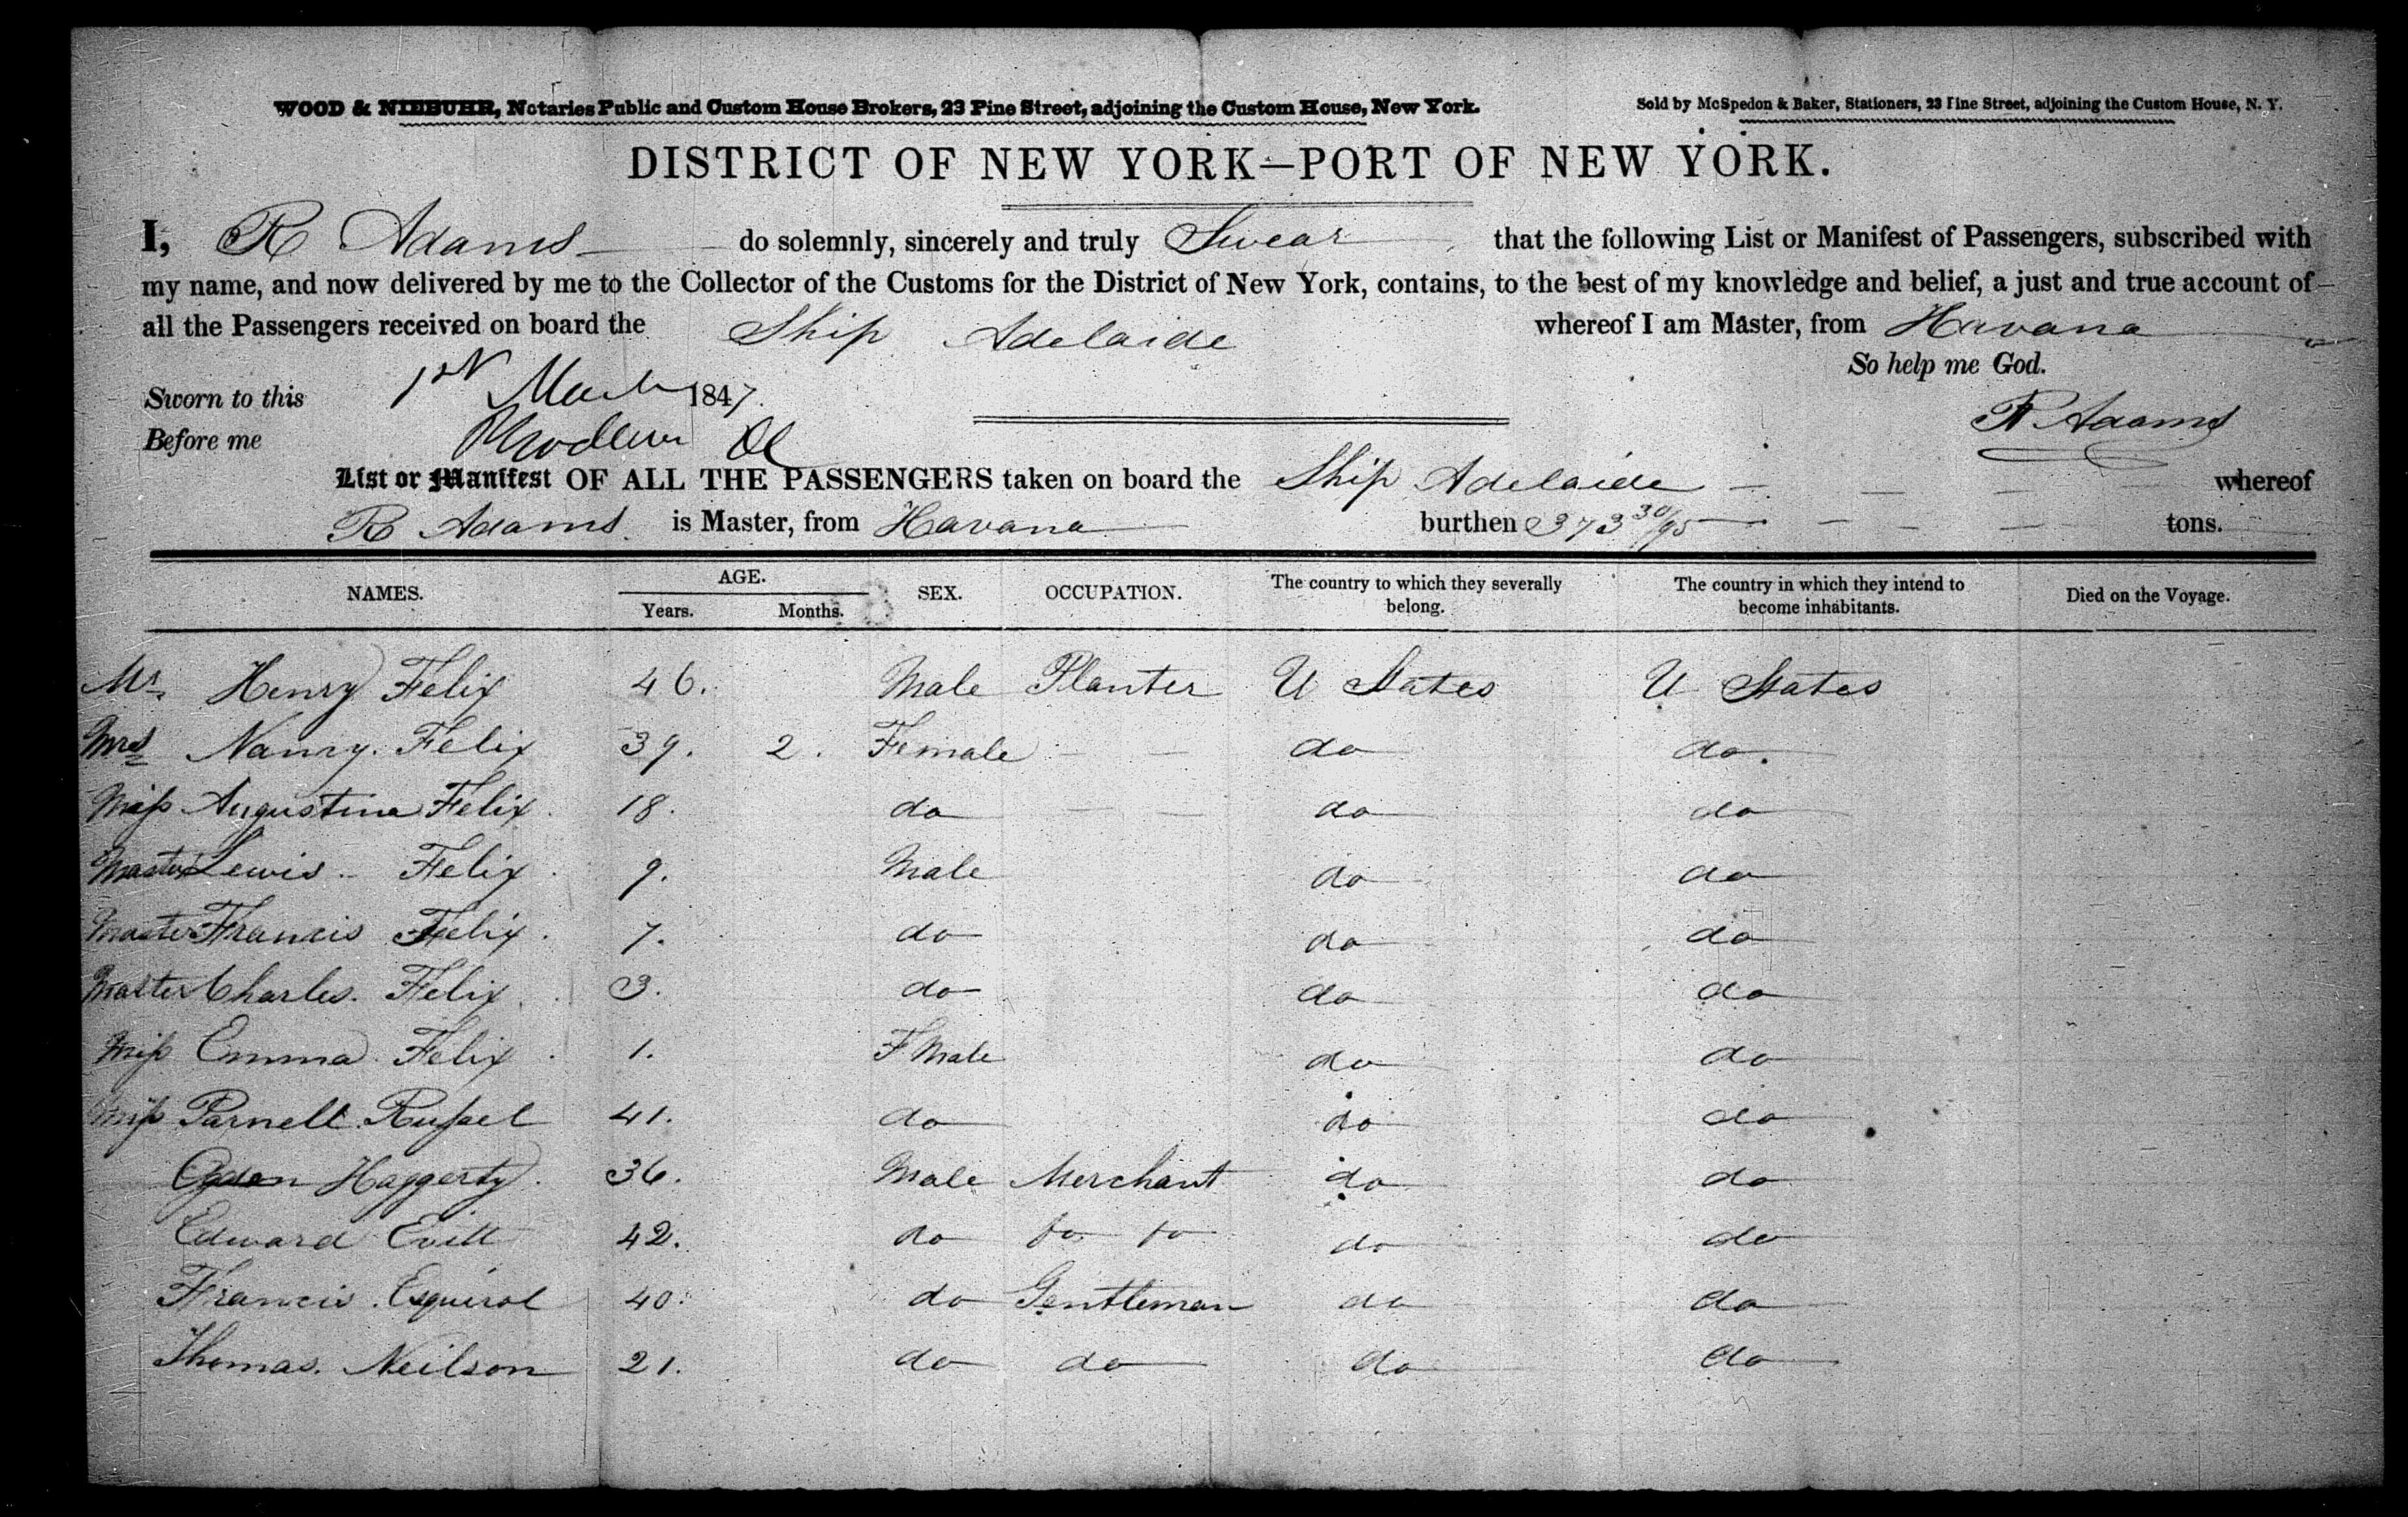 WOOD & NIEBUHR, Notaries Public and Custom House Brokers, 23 Pine Street, adjoining the Custom House, New York.
Sold by McSpedon & Baker, Stationers, 23 Pine Street, adjoining the Custom House, N. Y.
DISTRICT OF NEW YORK—PORT OF NEW YORK.
I, R Adams do solemnly, sincerely and truly Swear that the following List or Manifest of Passengers, subscribed with
my name, and now delivered by me to the Collector of the Customs for the District of New York, contains, to the best of my knowledge and belief, a just and true account of
all the Passengers received on board the Ship Adelaide whereof I am Master, from Havana
So help me God.
Sworn to this 1st March 1847.
R Adams
Before me
List or Manifest OF ALL THE PASSENGERS taken on board the Ship Adelaide whereof
R Adams is Master, from Havana burthen 373 30/95 tons.
NAMES. AGE. SEX. OCCUPATION. The country to which they severally belong. The country in which they intend to become inhabitants. Died on the Voyage.
Years. Months.
Mr Henry Felix 46. Male Planter U States U States
Mrs Nancy. Felix 39. 2. Female do do
Miss Augustine Felix 18. do do do
Master Lewis Felix 9. Male do do
Master Francis Felix 7. do do do
Master Charles. Felix 3. do do do
Miss Emma Felix 1. F Male do do
Miss Parnell Russel 41. do do do
Ogden Haggerty 36. Male Merchant do do
Edward Evitt 42. do do do do do
Francis Esquirol 40. do Gentleman do do
Thomas. Neilson 21. do do do do